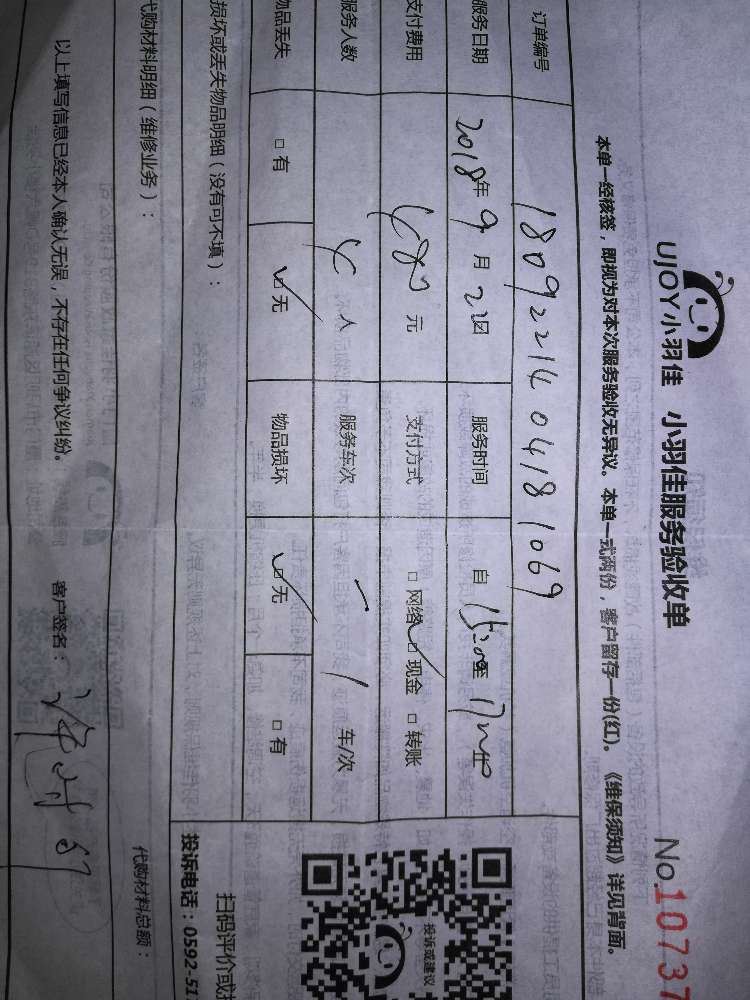 UJOY小羽佳 小羽佳服务验收单 No.10737
本单一经核签，即视为对本次服务验收无异议。本单一式两份，客户留存一份(红)。《维保须知》详见背面。
订单编号 180922140418 1069
服务日期 2018年 9 月 2 日 服务时间 自 15:00至 17
支付费用 480 元 支付方式 □ 网络 □ 现金 □ 转账
服务人数 4 人 服务车次 1 车/次
物品丢失 □ 有 □ 无 物品损坏 □ 无 □ 有
损坏或丢失物品明细（没有可不填）：
投诉或建议
扫码评价或
投诉电话：0592-51
代购材料明细（维修业务）： 代购材料总额：
以上填写信息已经本人确认无误，不存在任何争议纠纷。 客户签名：